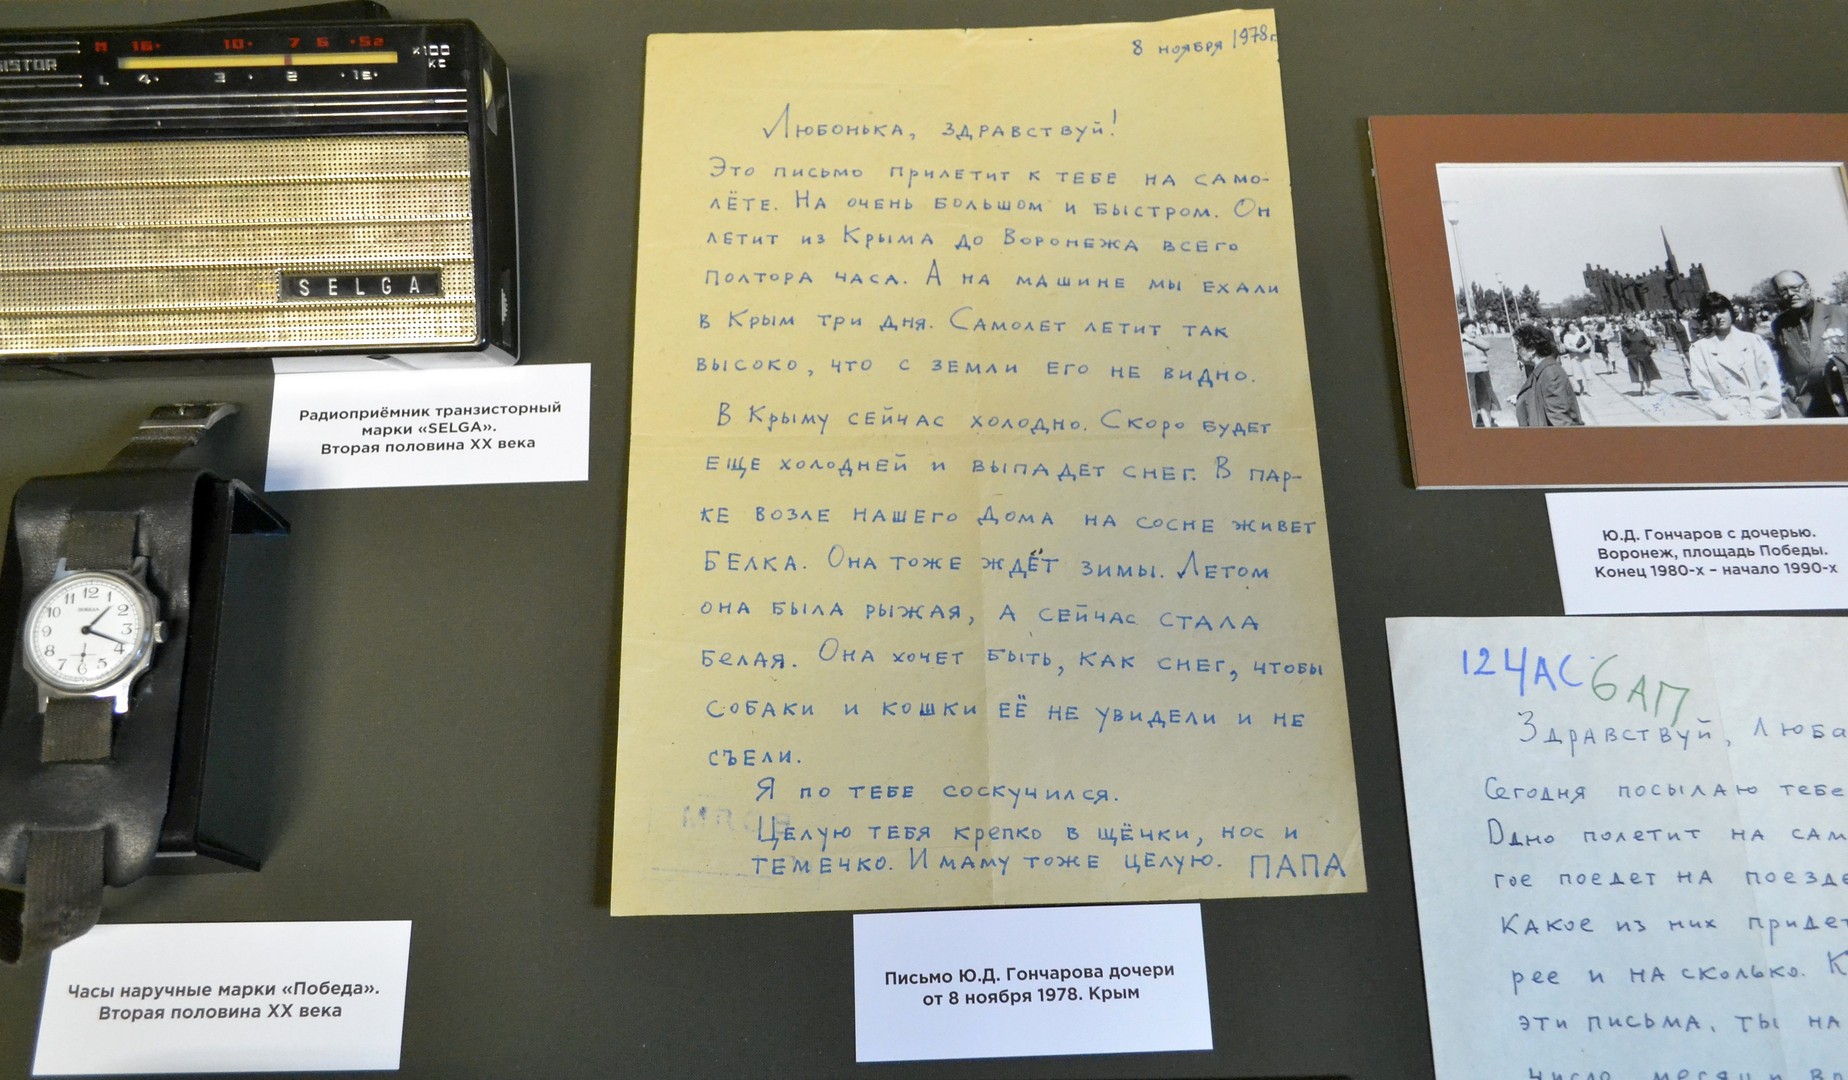 M 16 10 7 6 52
ISTOR
×100 КС
L 4 3 2
SELGA
Радиоприёмник транзисторный
марки «SELGA».
Вторая половина XX века
12 1 2 3 4 5 6 7 8 9 10 11
Часы наручные марки «Победа».
Вторая половина XX века
8 ноября 1978г.
Любонька, здравствуй!
Это письмо прилетит к тебе на само-
лёте. На очень большом и быстром. Он
летит из Крыма до Воронежа всего
полтора часа. А на машине мы ехали
в Крым три дня. Самолет летит так
высоко, что с земли его не видно.
В Крыму сейчас холодно. Скоро будет
еще холодней и выпадет снег. В пар-
ке возле нашего дома на сосне живет
белка. Она тоже ждёт зимы. Летом
она была рыжая, а сейчас стала
белая. Она хочет быть, как снег, чтобы
собаки и кошки её не увидели и не
съели.
Я по тебе соскучился.
Целую тебя крепко в щёчки, нос и
темечко. И маму тоже целую. ПАПА
Письмо Ю.Д. Гончарова дочери
от 8 ноября 1978. Крым
Ю.Д. Гончаров с дочерью.
Воронеж, площадь Победы.
Конец 1980-х – начало 1990-х
12 ЧАС 6 АП
Здравствуй, Люба
Сегодня посылаю тебе
Одно полетит на сам
гое поедет на поезде
Какое из них придет
рее и на сколько. К
эти письма, ты на
число, месяц и